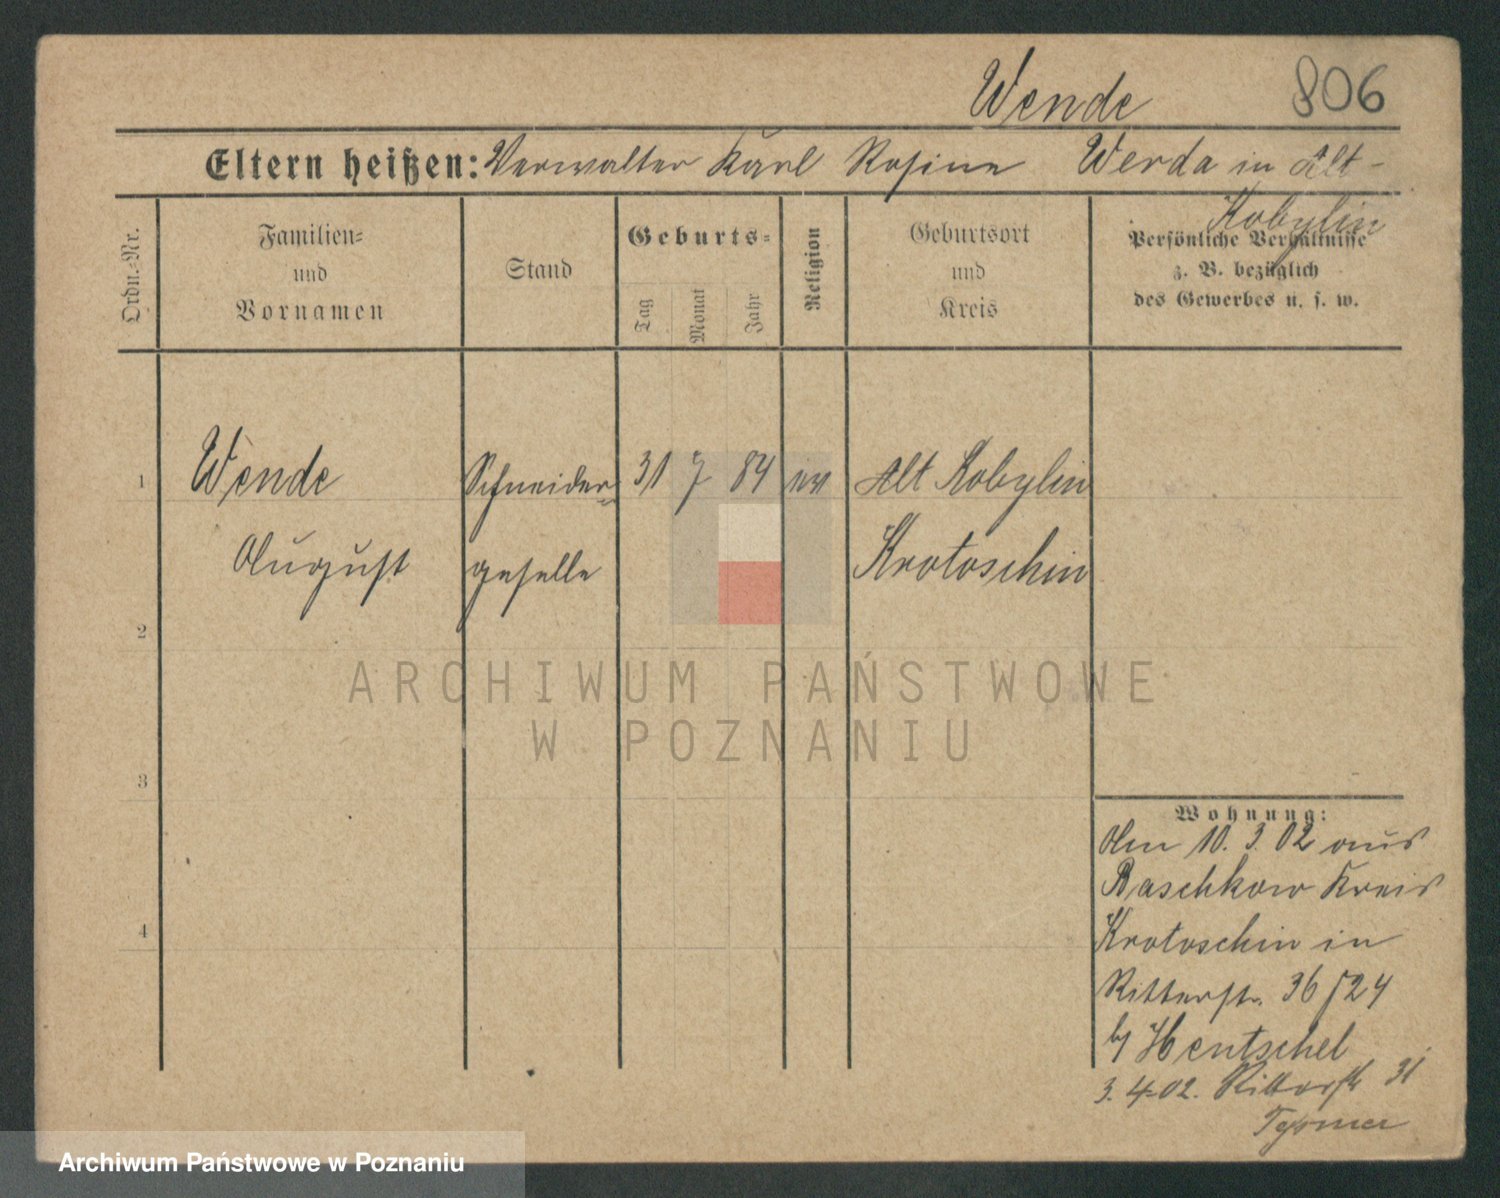 Wende 806
Eltern heißen: Verwalter Karl Rosine Werda in Alt-
Kobylin
Ordn.-Nr.
Familien-
und
Vornamen
Stand
Geburts-
Tag
Monat
Jahr
Religion
Geburtsort
und
Kreis
Persönliche Verhältnisse
z. B. bezüglich
des Gewerbes u. s. w.
1 Wende Schneider 31 7 84 ev Alt Kobylin
August geselle Krotoschin
2
3
4
Wohnung:
Am 10. 3. 02 aus
Raschkow Kreis
Krotoschin in
Ritterstr. 36 / 24
b/ Hentschel
3. 4. 02. Ritterstr 31
ARCHIWUM PAŃSTWOWE
W POZNANIU
Archiwum Państwowe w Poznaniu